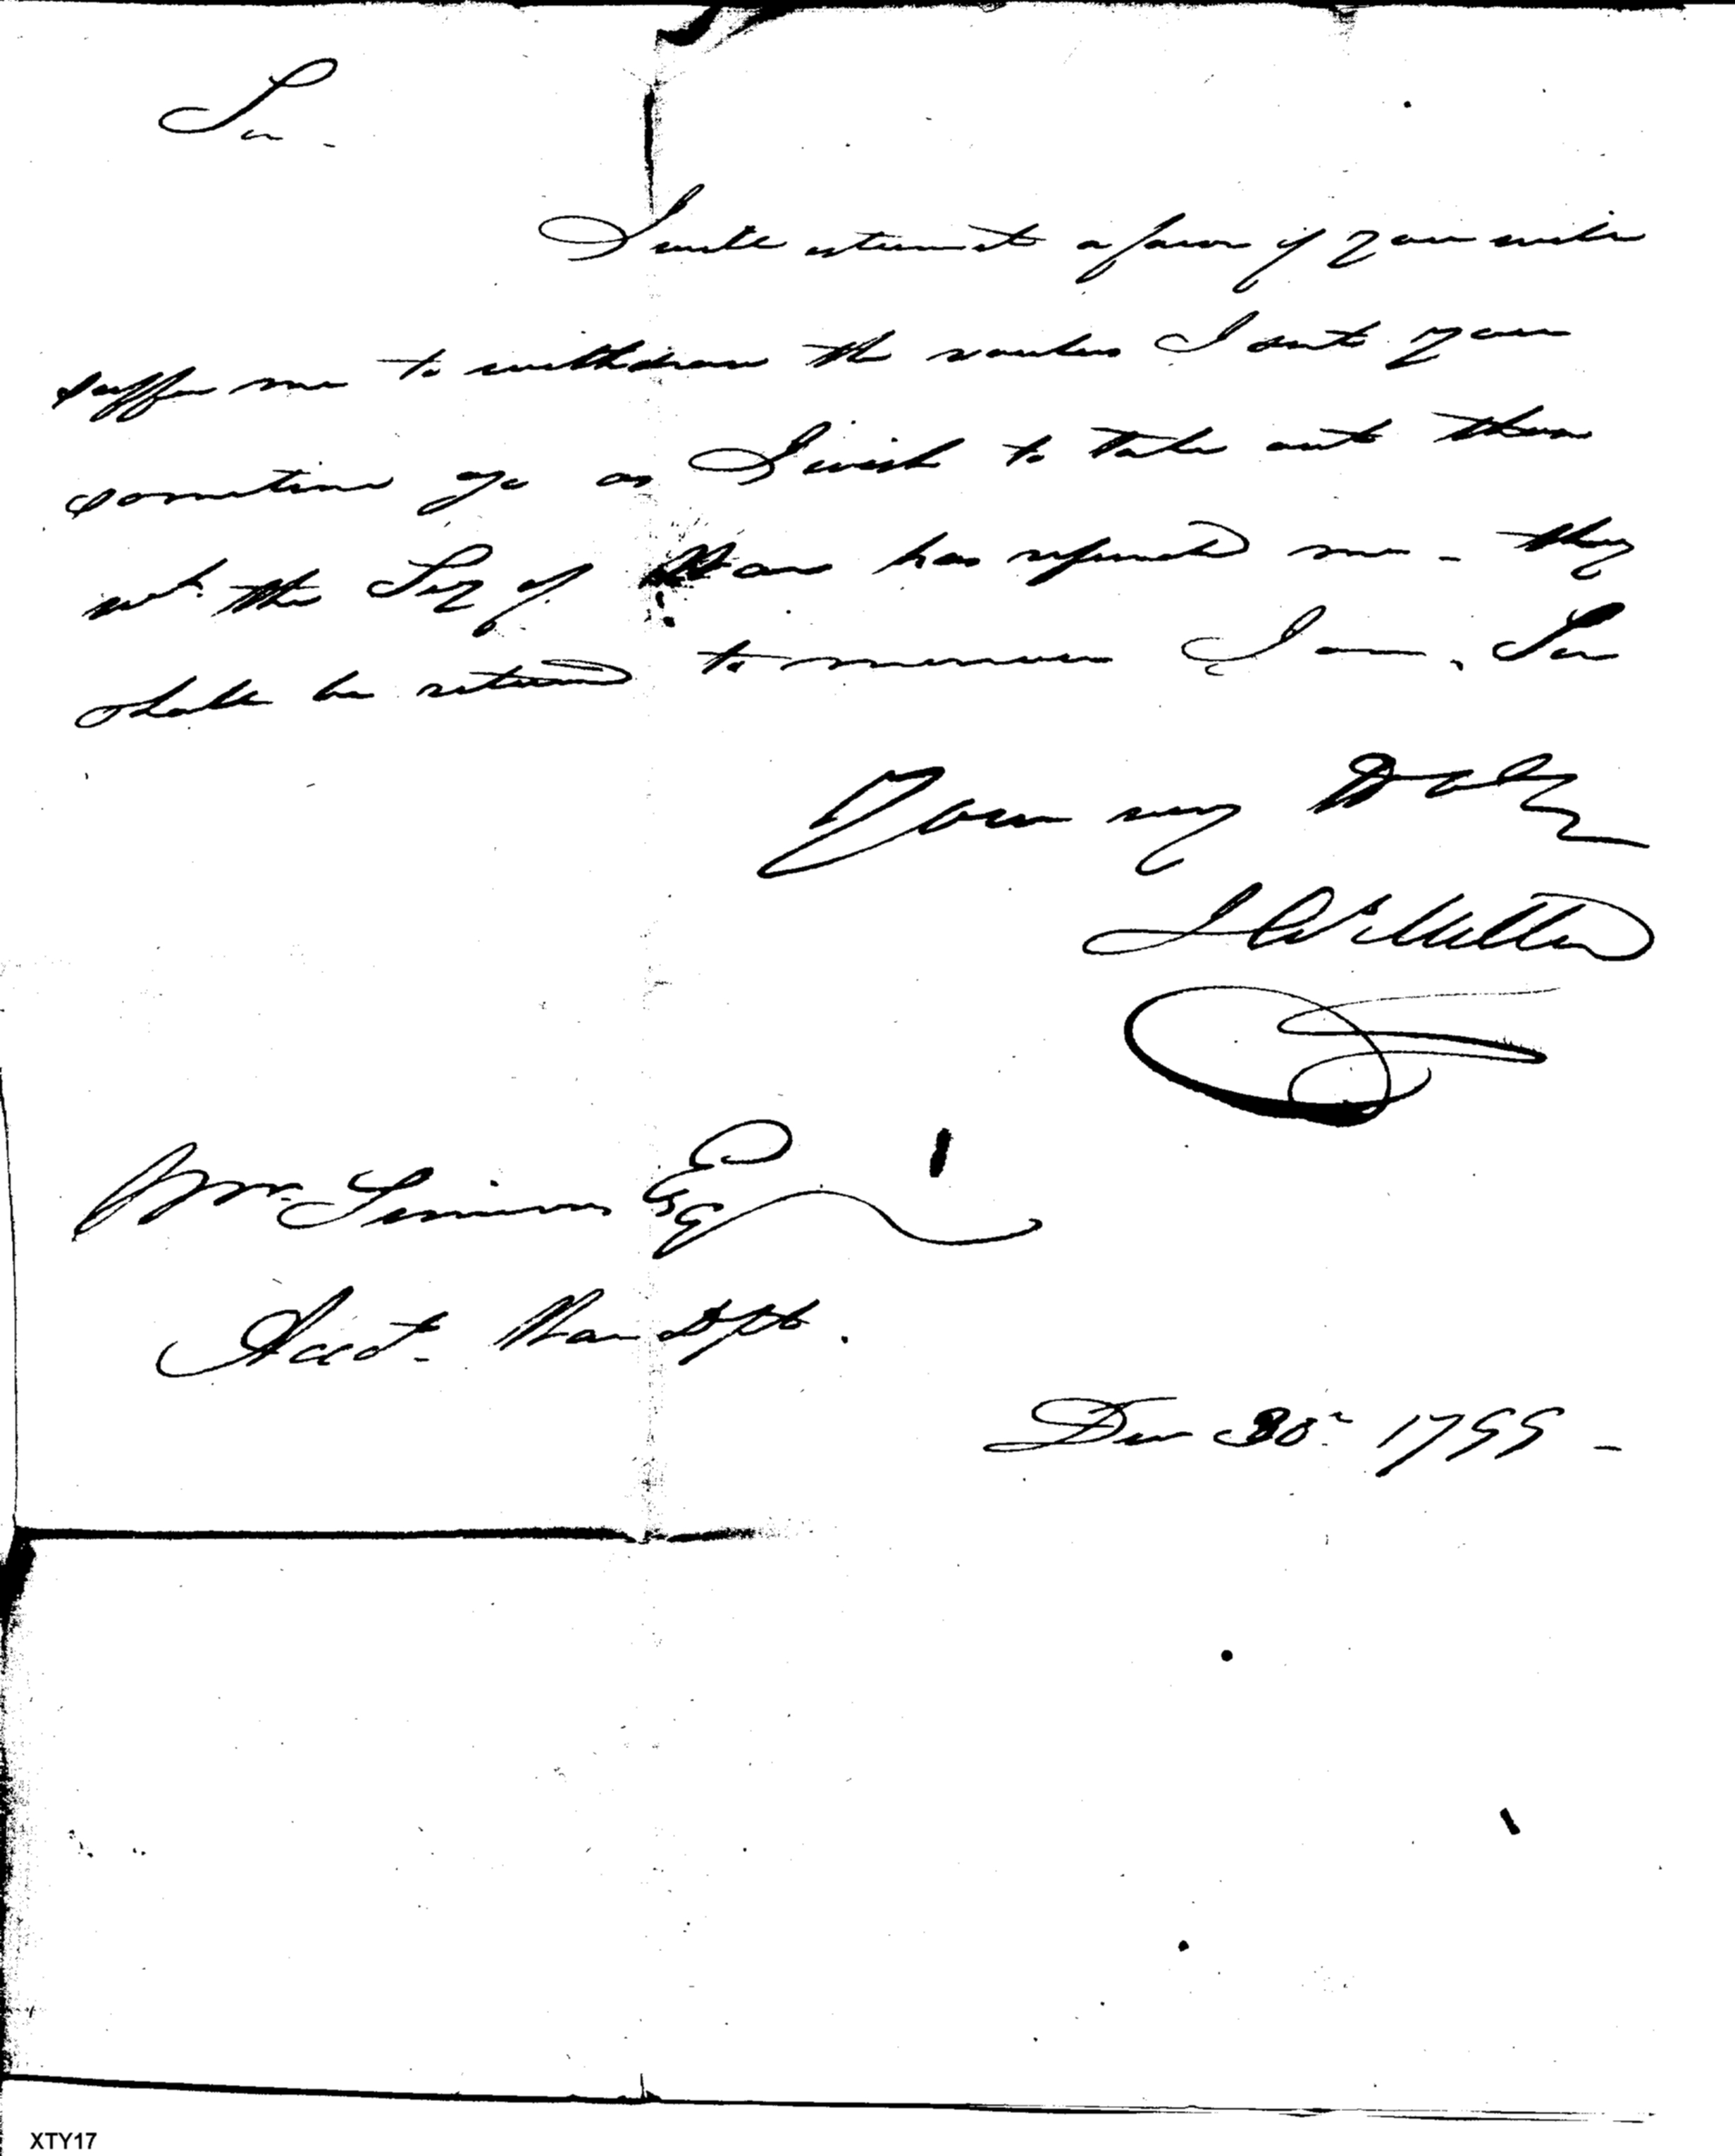 Sir -
I will esteem it a favor if you will
suffer me to withdraw the vouchers I sent you
sometime ago as I wish to take out them
the Secy of War has refused me - they
shall be returned to morrow I am, Sir
Your very Obt
Wm Simmons Esq
Acct. War Dept.
Dec 30th 1799 -
XTY17